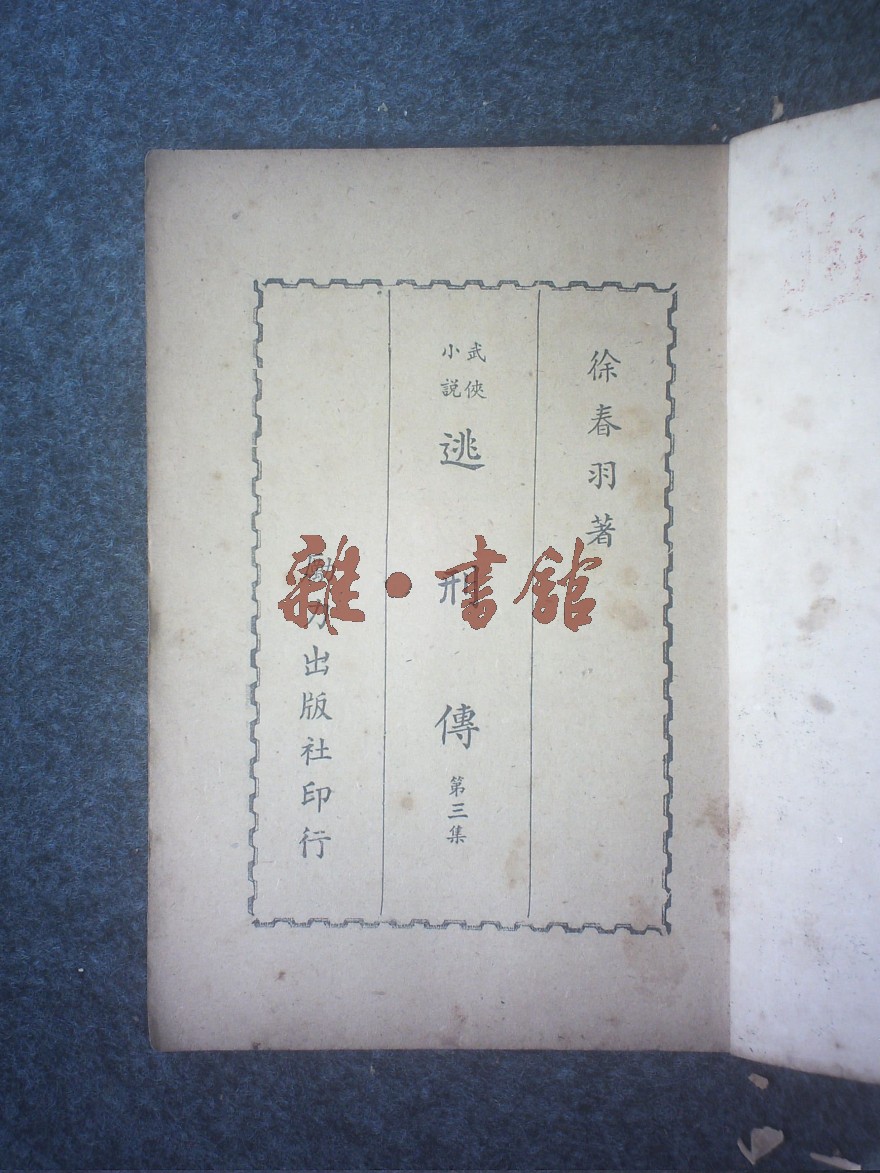 徐春羽著
武俠
小說
逃刑傳
第三集
力出版社印行
雜·書館